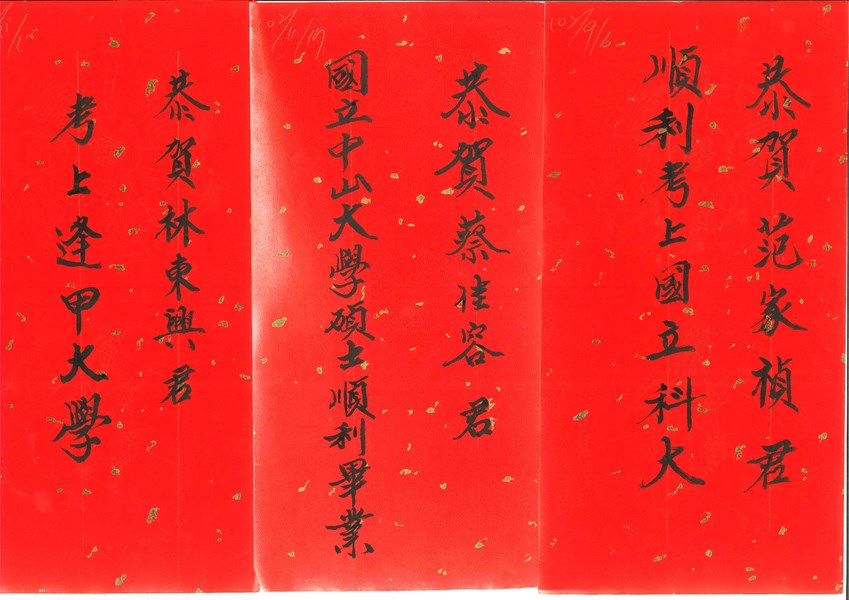 103/9/6
恭賀范家禎君
順利考上國立科大
恭賀蔡佳容君
國立中山大學碩士順利畢業
恭賀林東興君
考上逢甲大學